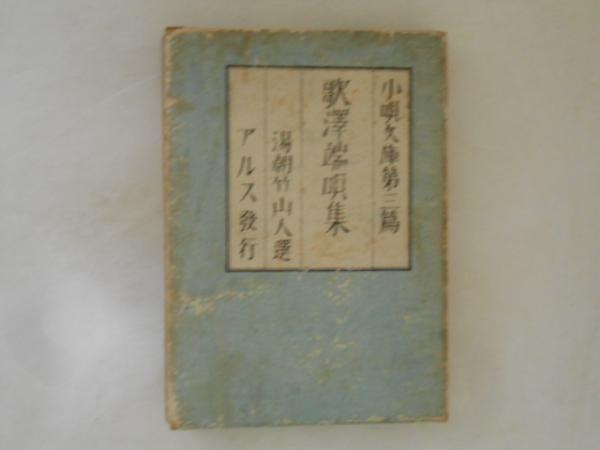 小唄文庫第三篇
歌澤端唄集
湯朝竹山人選
アルス發行